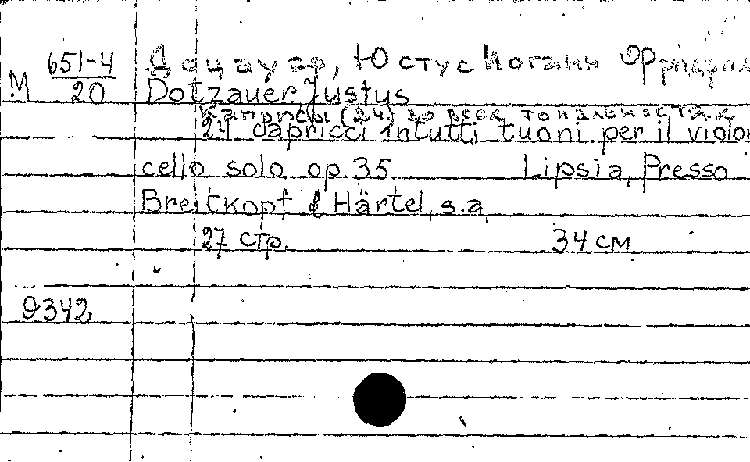 М 651-4/20 Дацауэр, Юстус Иоганн
Dotzauer, Justus
Каприсы (24) во всех тональностях
24 capricci in tutti tuoni per il violon
cello solo op. 35. Lipsia, Presso
Breitkopf & Härtel, s.a.
27 стр. 34 см
9342